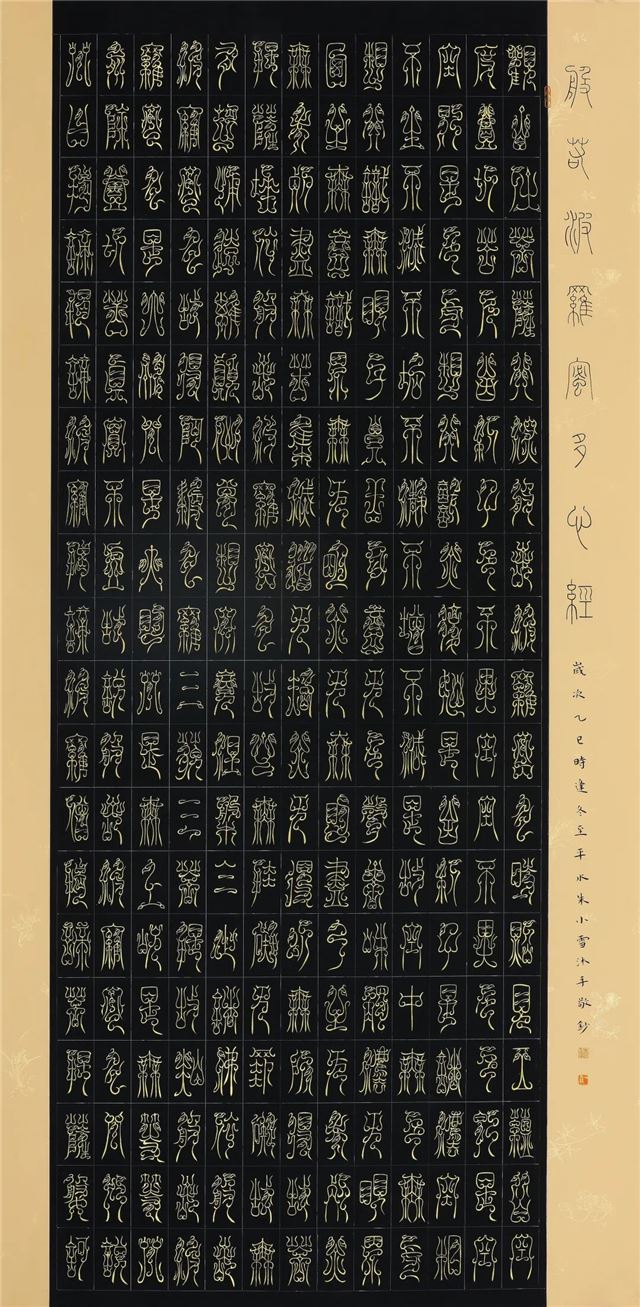 般若波羅蜜多心經
歲次乙巳時逢冬至平水朱小雪沐手敬鈔
觀自在菩薩行深般若波羅蜜多時照見五蘊皆空
度一切苦厄舍利子色不異空空不異色色即是空
空即是色受想行識亦復如是舍利子是諸法空相
不生不滅不垢不淨不增不減是故空中無色無受
想行識無眼耳鼻舌身意無色聲香味觸法無眼界
乃至無意識界無無明亦無無明盡乃至無老死亦
無老死盡無苦集滅道無智亦無得以無所得故菩
提薩埵依般若波羅蜜多故心無罣礙無罣礙故無
有恐怖遠離顛倒夢想究竟涅槃三世諸佛依般若
波羅蜜多故得阿耨多羅三藐三菩提故知般若波
羅蜜多是大神咒是大明咒是無上咒是無等等咒
能除一切苦真實不虛故說般若波羅蜜多咒即說
咒曰揭諦揭諦波羅揭諦波羅僧揭諦菩提薩婆訶